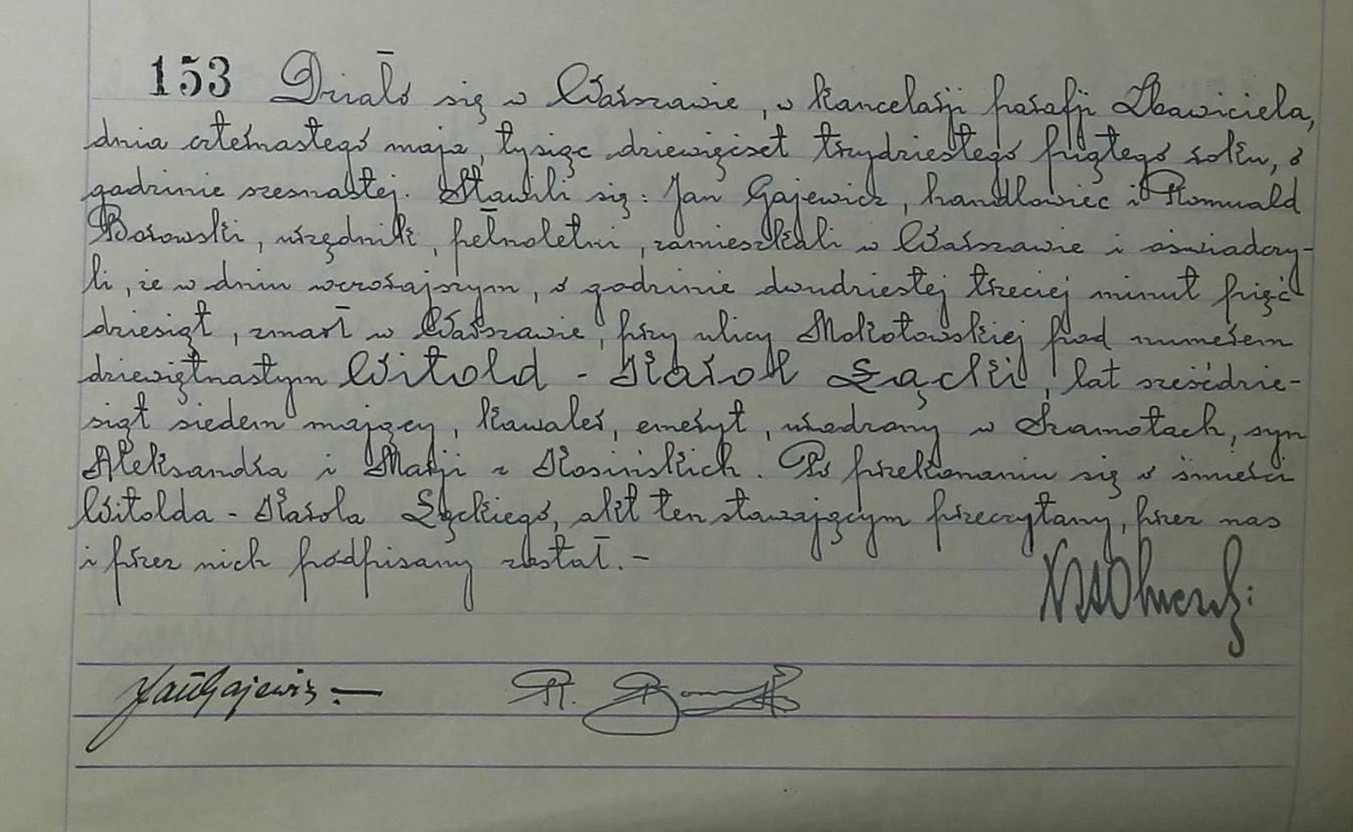 153 Działo się w Warszawie, w kancelarji parafji Zbawiciela,
dnia czternastego maja, tysiąc dziewięćset trzydziestego piątego roku, o
godzinie szesnastej. Stawili się: Jan Gajewicz, handlowiec i Romuald
Borowski, urzędnik, pełnoletni, zamieszkali w Warszawie i oświadczy-
li, że w dniu wczorajszym, o godzinie dwudziestej trzeciej minut pięć
dziesiąt, zmarł w Warszawie, przy ulicy Mokotowskiej pod numerem
dziewiętnastym Witold - Karol Łącki, lat sześćdzie-
siąt siedem mający, kawaler, emeryt, urodzony w Szamotach, syn
Aleksandra i Marji z Kosińskich. Po przekonaniu się o śmierci
Witolda - Karola Łąckiego, akt ten stawającym przeczytany, przez nas
i przez nich podpisany został. -
Jan Gajewicz - R.